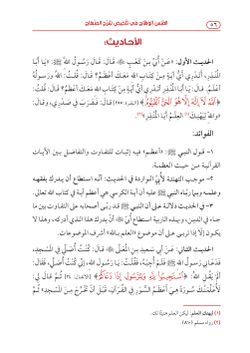 ٥٦ الشمس الوهاج في تلخيص شرح المنهاج
الأحاديث:
الحديث الأول: «عَنْ أُبَيِّ بْنِ كَعْبٍ ﵁، قَالَ: قَالَ رَسُولُ اللهِ ﷺ: «يَا أَبَا
الْمُنْذِرِ، أَتَدْرِي أَيُّ آيَةٍ مِنْ كِتَابِ اللهِ مَعَكَ أَعْظَمُ؟» قَالَ: قُلْتُ: اللهُ وَرَسُولُهُ
أَعْلَمُ. قَالَ: «يَا أَبَا الْمُنْذِرِ أَتَدْرِي أَيُّ آيَةٍ مِنْ كِتَابِ اللهِ مَعَكَ أَعْظَمُ؟» قَالَ: قُلْتُ:
﴿اللَّهُ لَا إِلَهَ إِلَّا هُوَ الْحَيُّ الْقَيُّومُ﴾ [البقرة: ٢٥٥] قَالَ: فَضَرَبَ فِي صَدْرِي، وَقَالَ:
«وَاللهِ لِيَهْنِكَ(١) الْعِلْمُ أَبَا الْمُنْذِرِ»(٢).
الفوائد:
١- قول النبي ﷺ: «أعظم» فيه إثبات للتفاوت والتفاضل بين الآيات
القرآنية من حيث العظمة.
٢- موجب التهنئة لأُبي الواردة في الحديث: أنه استطاع أن يدرك بفقهه
وعلمه وبما رباه النبي ﷺ عليه أن آية الكرسي هي أعظم آية في كتاب الله تعالى.
٣- في الحديث دلالة على أن النبي ﷺ قد ربى أصحابه على التفاوت بين ما
جاء في الدين، وبهذه التربية استطاع أُبيّ أن يدرك هذا الذي أدركه، وهذا لا
يكون إلا إذا تربى على أن موضوع «العلم بالله» أشرف الموضوعات.
الحديث الثاني: عَنْ أَبِي سَعِيدِ بْنِ الْمُعَلَّى ﵁، قَالَ: كُنْتُ أُصَلِّي فِي الْمَسْجِدِ،
فَدَعَانِي رَسُولُ اللهِ ﷺ فَلَمْ أُجِبْهُ، فَقُلْتُ: يَا رَسُولَ اللهِ، إِنِّي كُنْتُ أُصَلِّي، فَقَالَ:
أَلَمْ يَقُلِ اللهُ: ﴿اسْتَجِيبُوا لِلَّهِ وَلِلرَّسُولِ إِذَا دَعَاكُمْ﴾ [الأنفال: ٢٤] ثُمَّ قَالَ لِي:
لَأُعَلِّمَنَّكَ سُورَةً هِيَ أَعْظَمُ السُّوَرِ فِي الْقُرْآنِ، قَبْلَ أَنْ تَخْرُجَ مِنَ الْمَسْجِدِ».
(١) ليهنك العلم: ليكن العلم هنيئًا لك.
(٢) رواه مسلم (٨١٠).